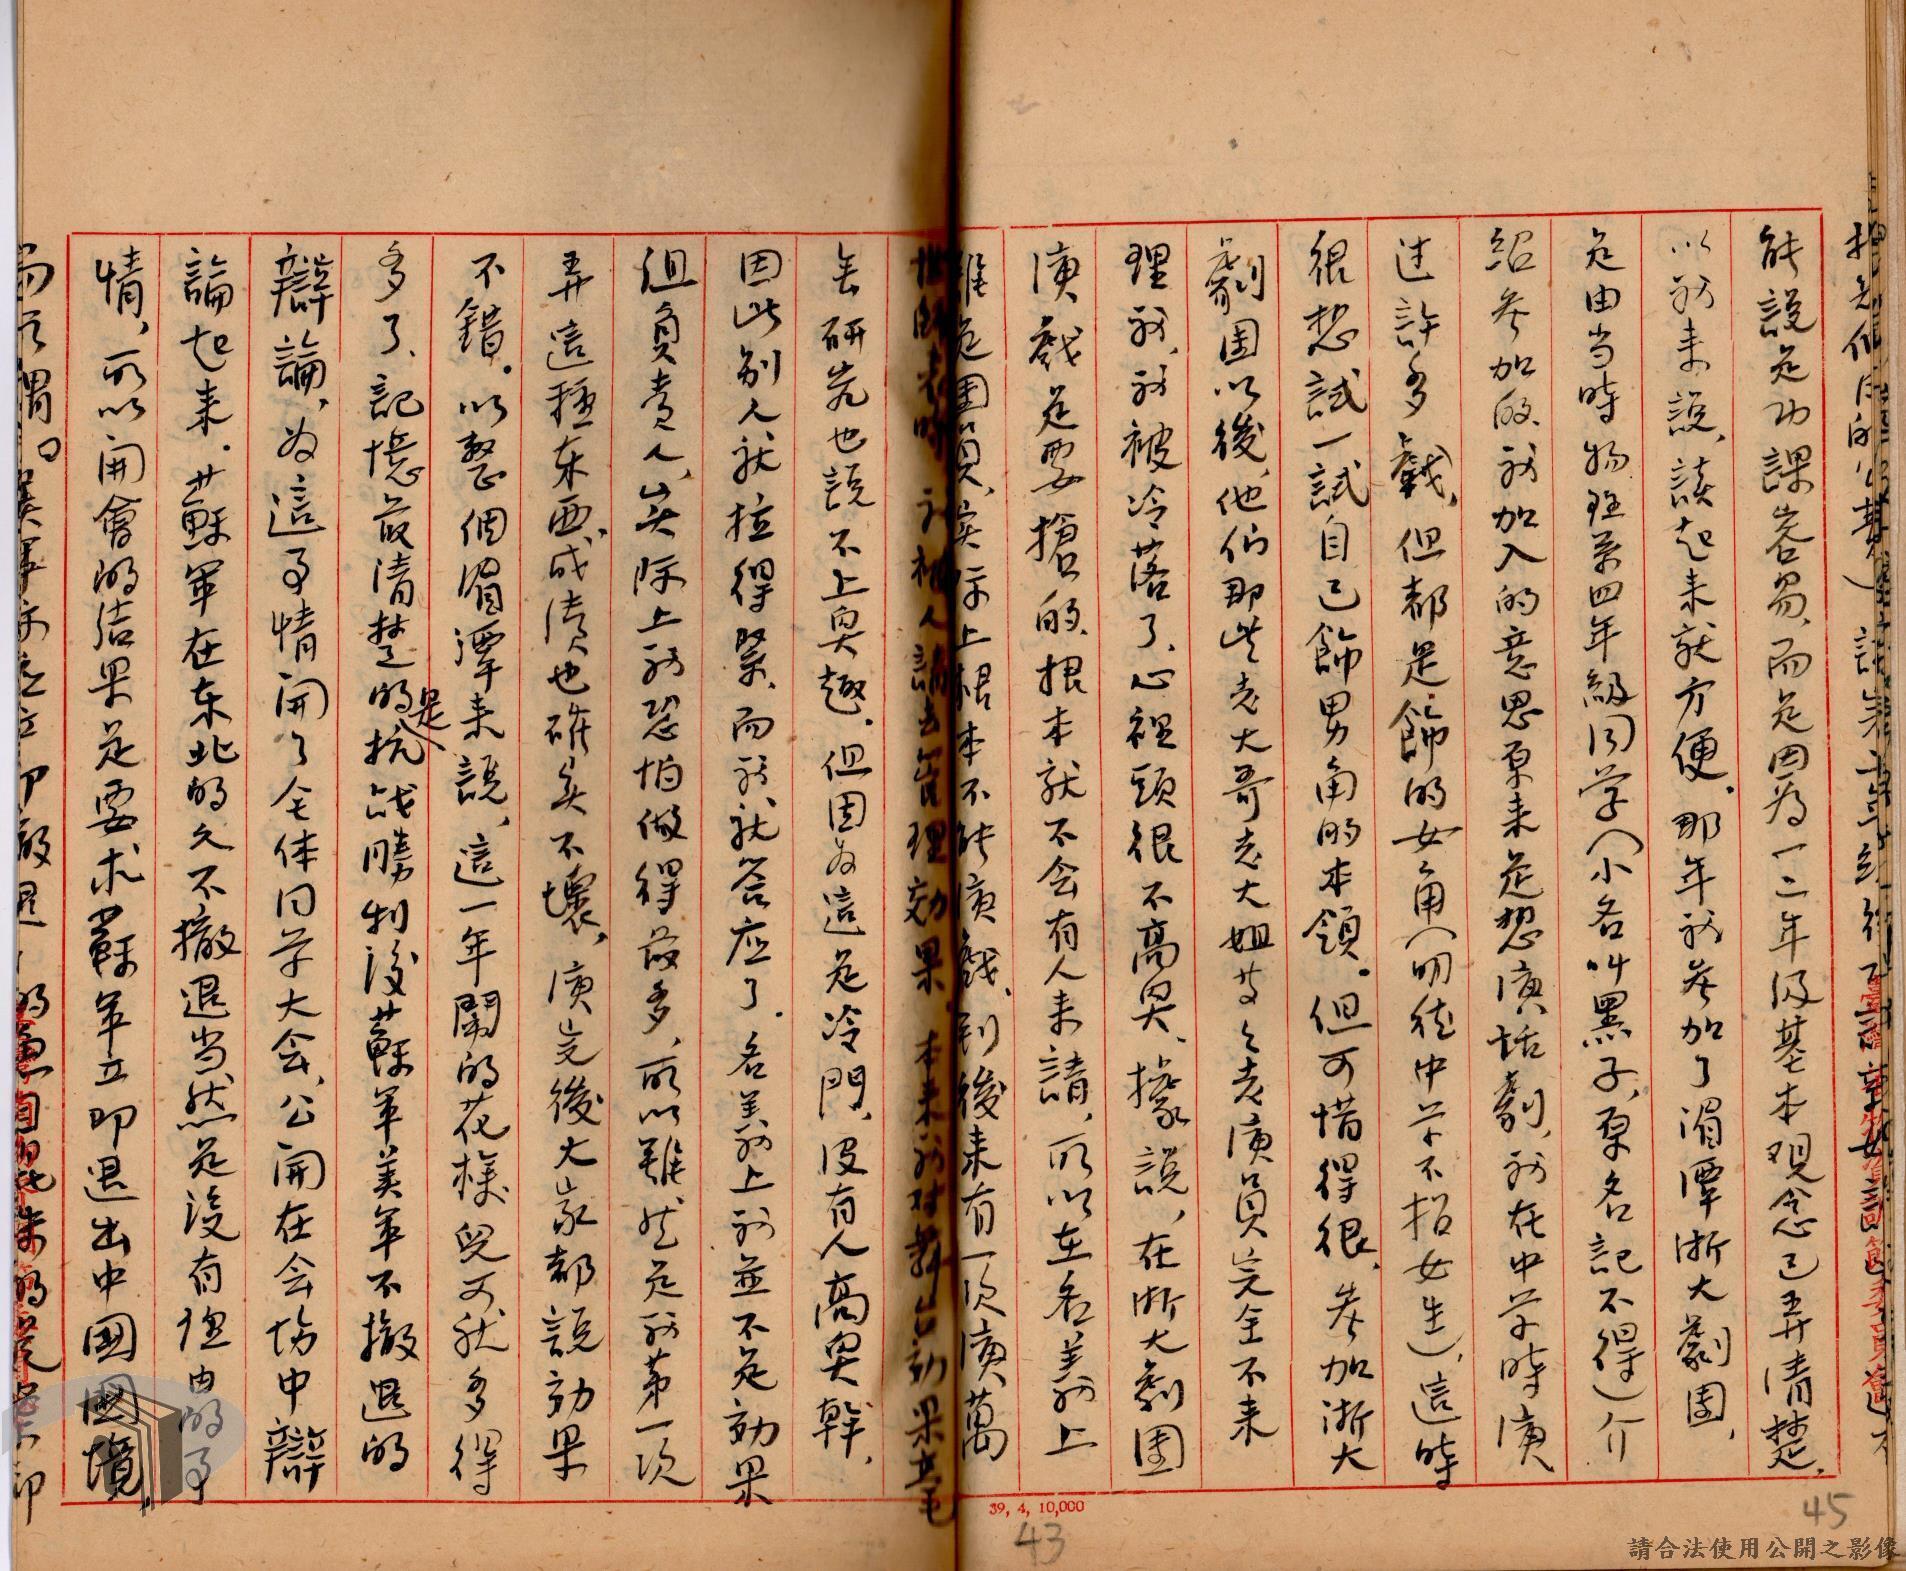 能說是功課容易，而是因為一二年级基本观念已弄清楚，
以我来說，談起来就方便。那年我参加了湄潭浙大劇团，
是由当時物理系四年級同学（小名叫黑子，原名記不得）介
紹参加的，我加入的意思原来是想演話劇，我在中学時演
过許多戯，但都是飾的女角（明德中学不招女生），這時
很想試一試自己飾男角的本領。但可惜得很，参加浙大
劇团以後，他们那些老大哥老大姐老演員完全不来
理我，我被冷落了，心裡頭很不高興，據說，在浙大劇团
演戲是要搶的，根本就不会有人来請，所以在名義上
雖是团員，实际上根本不能演戲，到後来有一次演萬
世師表時，我被人請去管理効果，本来我对舞台効果毫
無研究也說不上興趣，但因为這是冷門，没有人高興幹，
因此别人就拉得緊，而我就答应了。名義上我並不是効果
組負責人，实际上我恐怕做得最多，所以雖然是我第一次
弄這種东西，成绩也確实不壞，演完後大家都說効果
不錯。以整個湄潭来說，這一年鬧的花様兒可就多得
多了，記憶最清楚的是抗战勝利後蘇軍美軍不撤退的
辯論，为這事情開了全体同学大会，公開在会場中辯
論起来，蘇軍在东北的久不撤退当然是没有理由的事
情，所以開會的結果是要求蘇軍立即退出中國國境，
39, 4, 10,000
43
45
請合法使用公開之影像